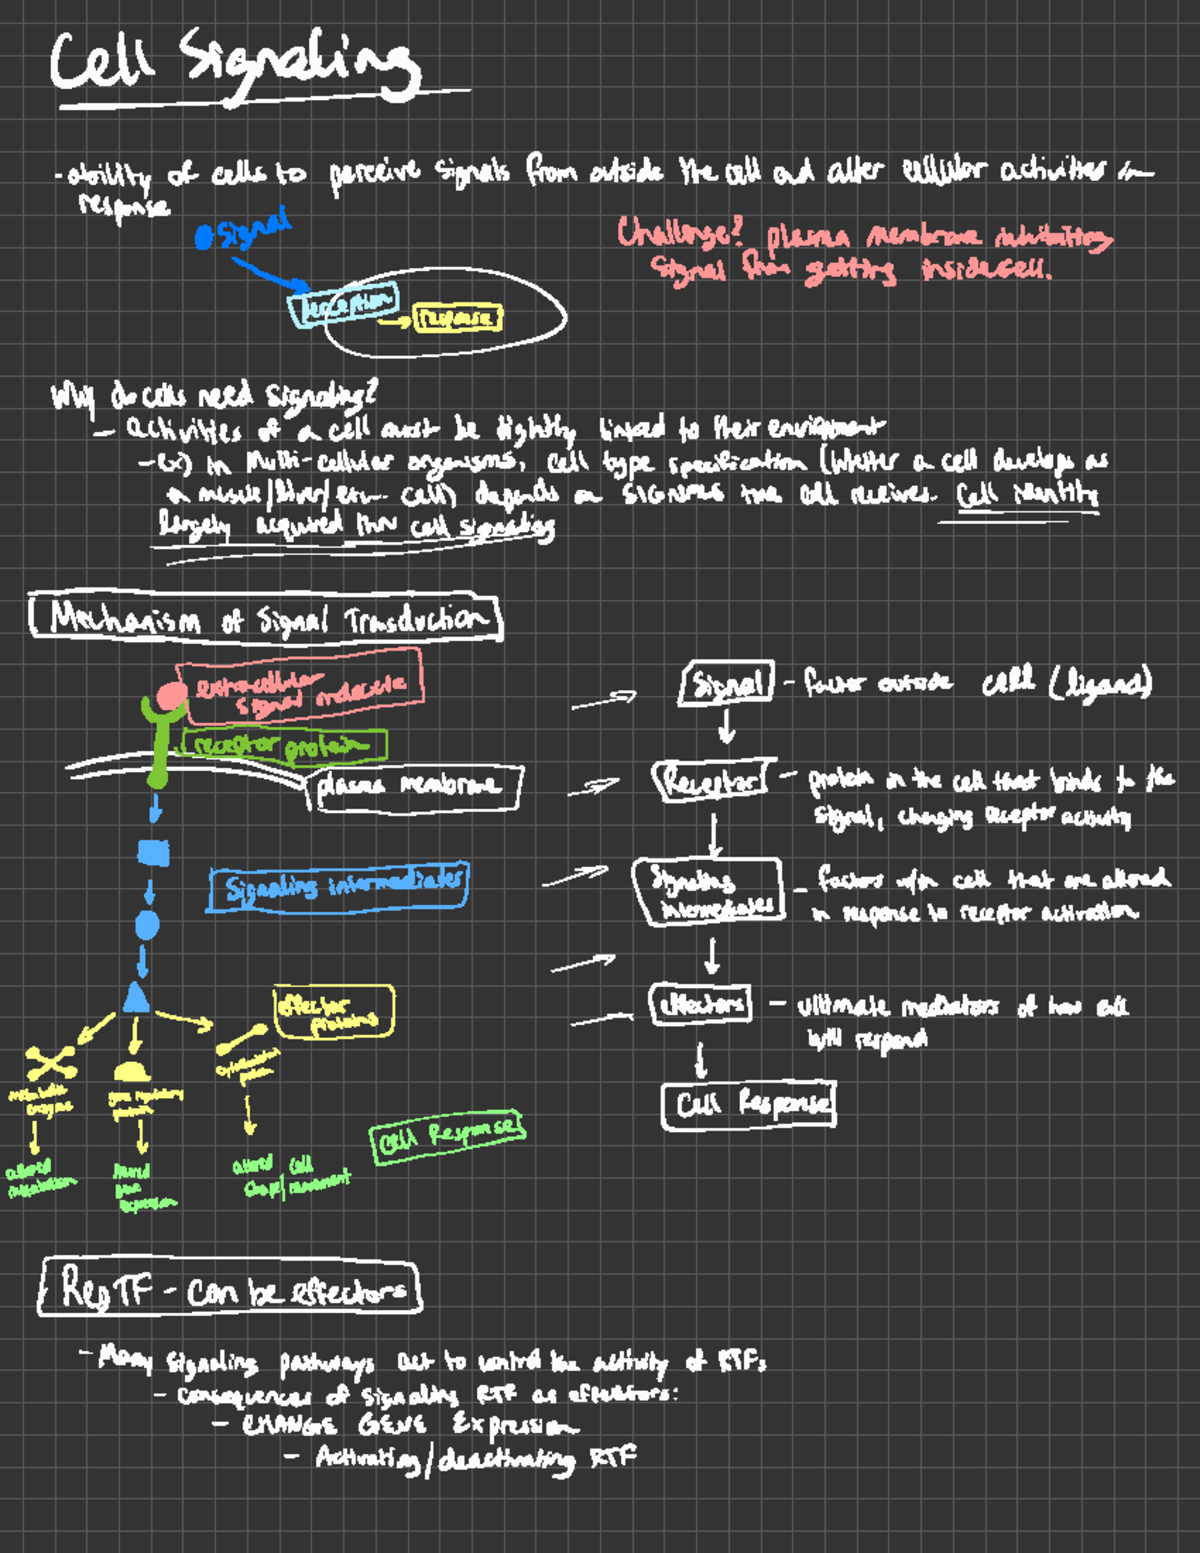 Cell Signaling
- ability of cells to perceive signals from outside the cell and alter cellular activities in
response
Signal
Challenge? plasma membrane inhibiting
signal from getting inside cell.
perception
response
Why do cells need signaling?
- activities of a cell must be tightly linked to their environment
- ex) in multi-cellular organisms, cell type specification (whether a cell develops as
a muscle/liver/etc. cell) depends on SIGNALS the cell receives. Cell identity
largely acquired thru cell signaling
Mechanism of Signal Transduction
extracellular
signal molecule
receptor protein
plasma membrane
Signaling intermediates
effector
proteins
metabolic
enzyme
gene regulatory
protein
cytoskeletal
protein
altered
metabolism
altered
gene
expression
altered cell
shape/movement
Cell Response
Signal - factor outside cell (ligand)
Receptor - protein in the cell that binds to the
signal, changing receptor activity
Signaling
intermediates - factors w/in cell that are altered
in response to receptor activation
effectors - ultimate mediators of how cell
will respond
Cell Response
Reg TF - Can be effectors
- Many signaling pathways act to control the activity of RTFs
- Consequences of signaling RTF as effectors:
- CHANGE GENE Expression
- Activating/deactivating RTF